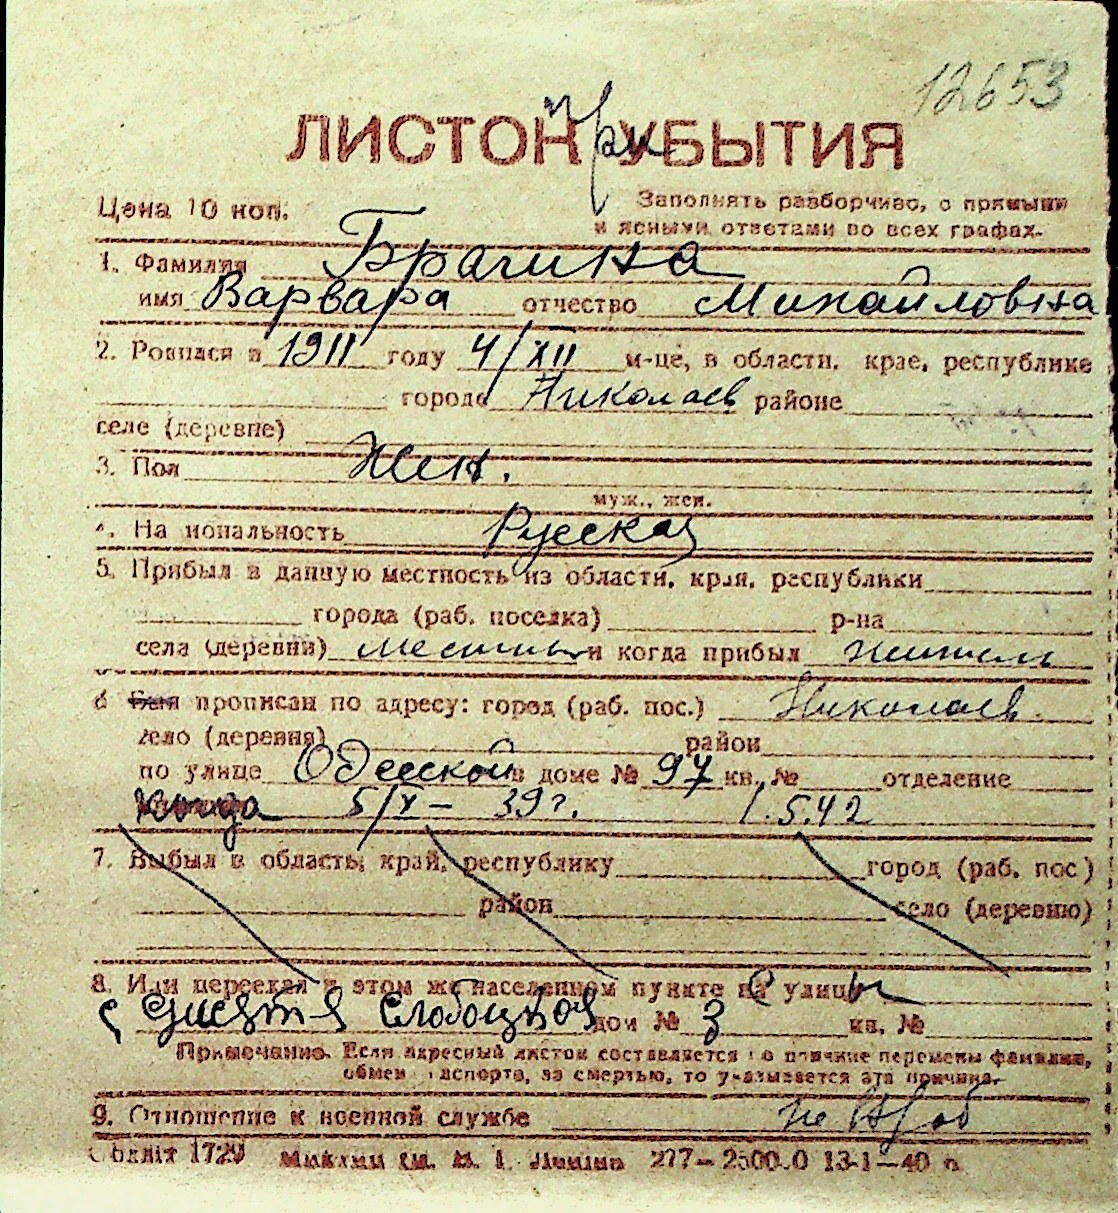 12653
ЛИСТОК УБЫТИЯ
При
Цена 10 коп.
Заполнять разборчиво, с прямыми
и ясными ответами во всех графах.
1. Фамилия Брагина
имя Варвара отчество Михайловна
2. Родился в 1911 году 4/XII м-це, в области, крае, республике
городе Николаев районе
селе (деревне)
3. Пол Жен.
муж., жен.
4. Национальность Русская
5. Прибыл в данную местность из области, края, республики
города (раб. поселка) р-на
села (деревни) местный и когда прибыл житель
6 Был прописан по адресу: город (раб. пос.) Николаев
село (деревня) район
по улице Одесской в доме № 97 кв. № отделение
Когда 5/X – 39 г. 1.5.42
7. Выбыл в область, край, республику город (раб. пос)
район село (деревню)
8. Или переехал в этом же населенном пункте на улицу
Слободская дом № 3 кв. №
Примечание. Если адресный листок составляется по причине перемены фамилии,
обмена паспорта, за смертью, то указывается эта причина.
9. Отношение к военной службе
Обліт 1729 277— 13-1—40 р.